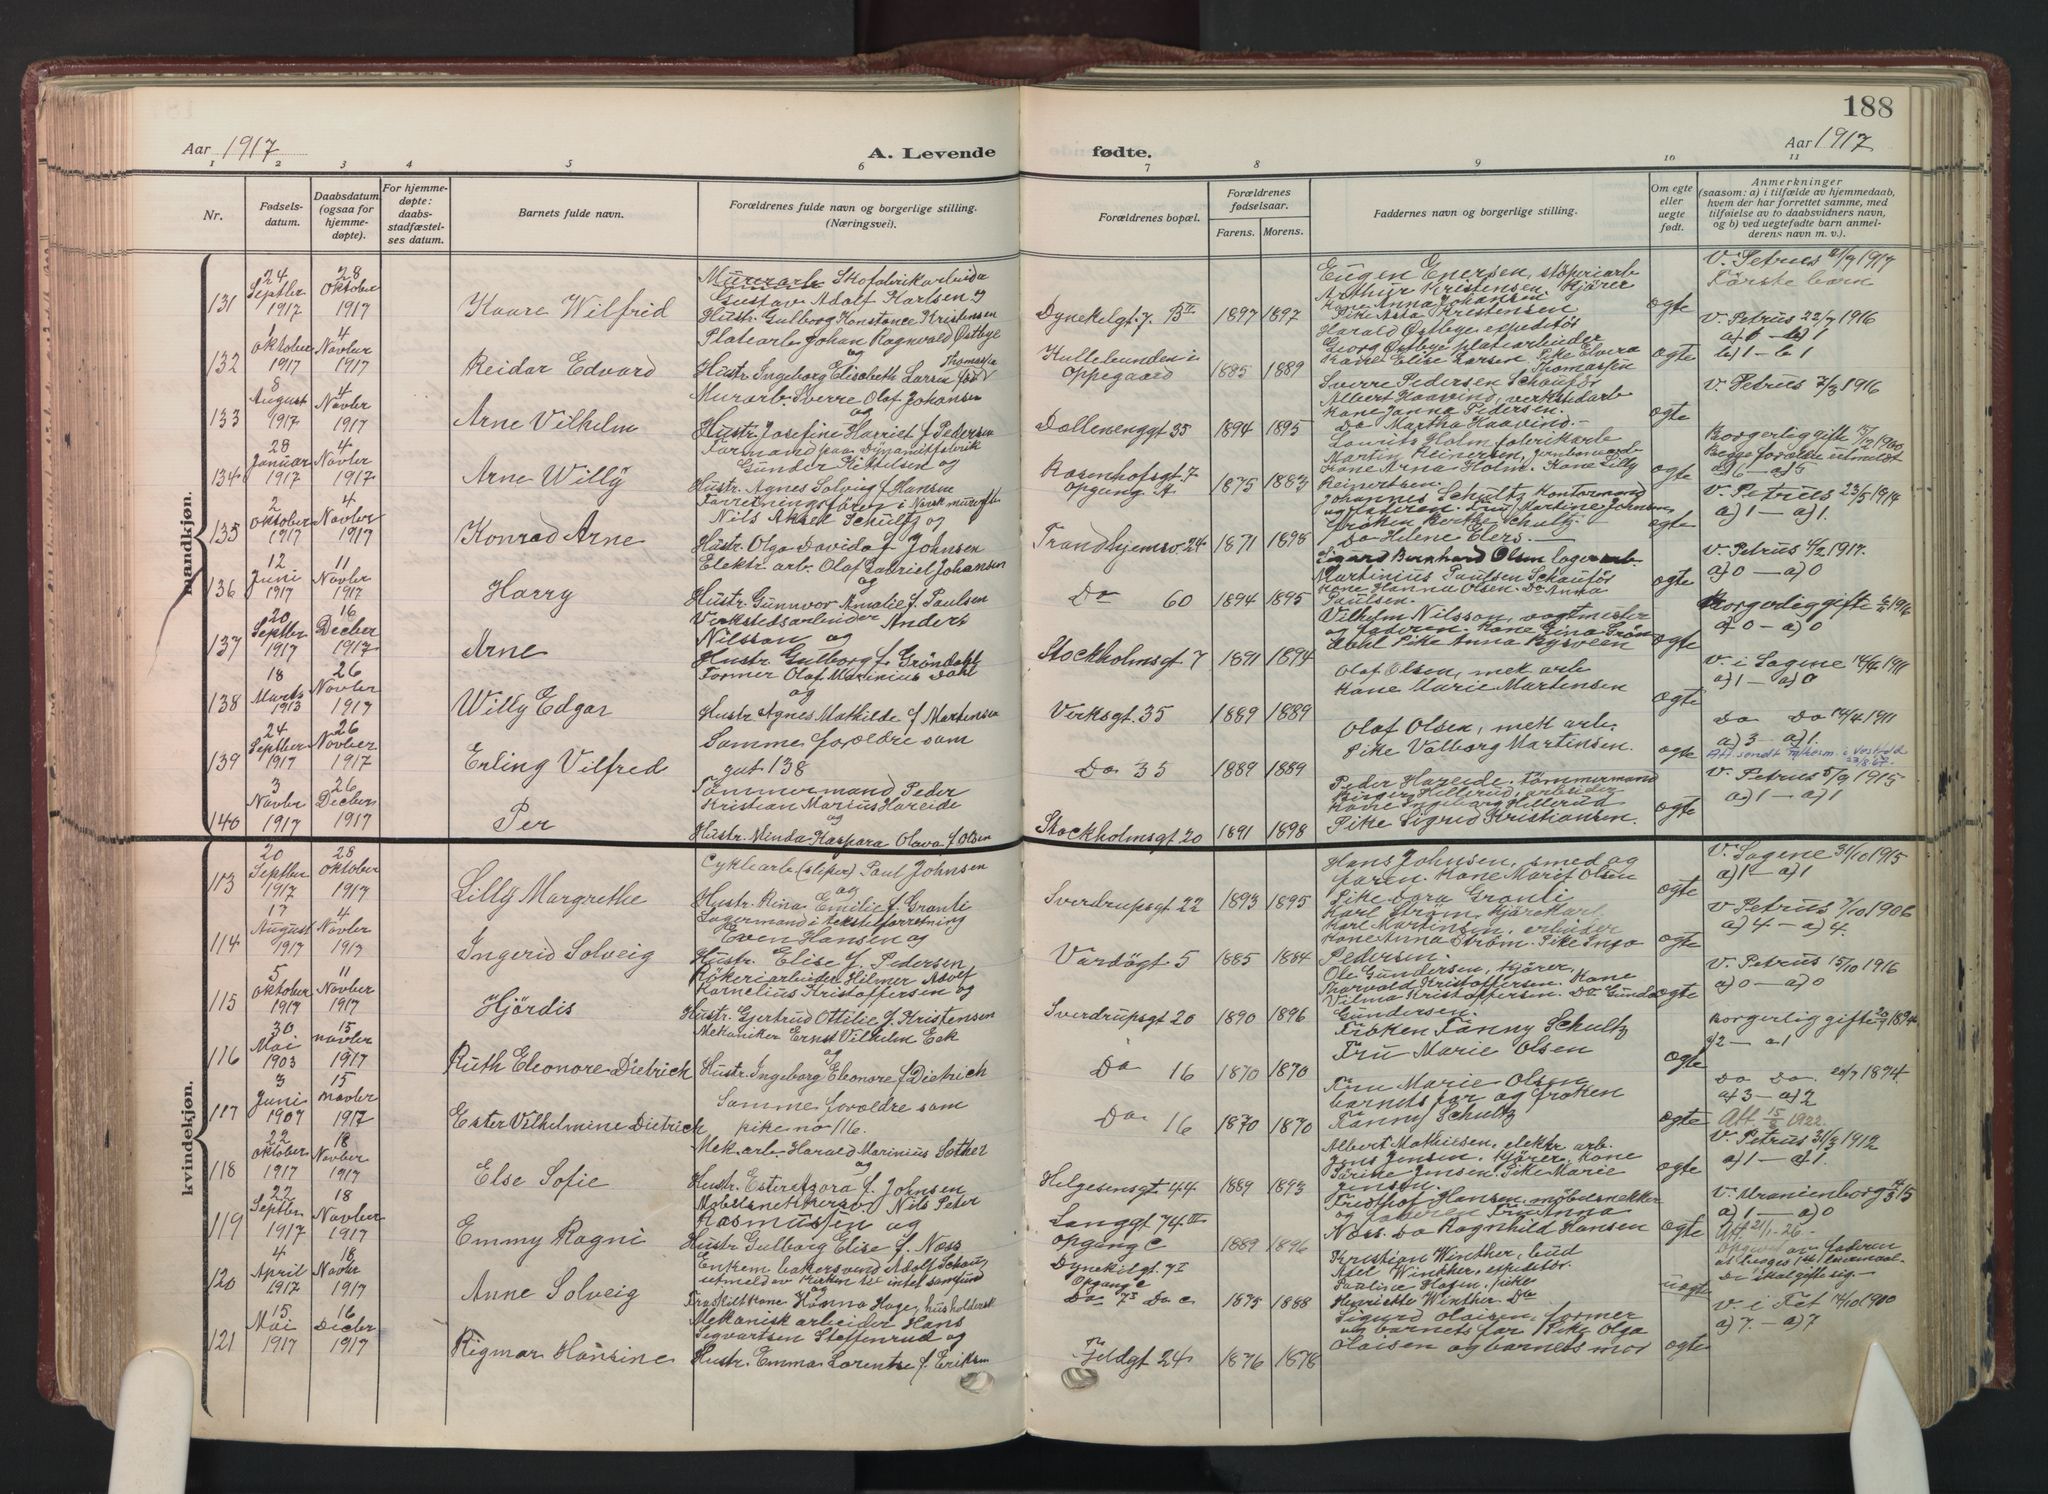 188
Aar 1917
A. Levende
fødte.
Aar 1917
1 2 3 4 5 6 7 8 9 10 11
Nr.
Fødsels-
datum.
Daabsdatum
(ogsaa for
hjemme-
døpte).
For hjemme-
døpte:
daabs-
stadfæstel-
ses datum.
Barnets fulde navn.
Forældrenes fulde navn og borgerlige stilling.
(Næringsvei).
Forældrenes bopæl.
Forældrenes
fødselsaar.
Farens. Morens.
Faddernes navn og borgerlige stilling.
Om egte
eller
uegte
født.
Anmerkninger
(saasom: a) i tilfælde av hjemmedaab,
hvem der har forrettet samme, med
tilføielse av to daabsvidners navn,
og b) ved uegtefødte barn anmel-
derens navn m. v.).
mandkjøn.
131
24
Septbr
1917
28
Oktober
1917
Kaare Wilfrid
Skofabrikarbeider
Gustav Adolf Karlsen og
Hustr. Gulborg Konstance Kristensen
Dynekilgt. 7. B II
1897 1897
Eugen Enersen, støperiarb
Arthur Kristensen. Kjører
Kone Anna Johansen
Pike Asta Kristensen
egte
V. Petrus 21/7 1917
Første barn
132
1
Oktober
1917
4
Novber
1917
Reidar Edvard
Platearb Johan Ragnvald Østbye
og
Hustr. Ingeborg Elisabeth Larsen født Thomassen
Kullebunden i
Oppegaard
1885 1889
Harald Østbye, expeditør
Georg Østbye platearbeider
Kone Elise Larsen. Pike Elvera
Thomassen
egte
V. Petrus 22/7 1916
b) 1 – b 1
133
8
August
1917
4
Novber
1917
Arne Vilhelm
Murarb. Sverre Olaf Johansen
og
Hustr. Josefine Harriet f. Pedersen
Dælenenggt 35
1894 1895
Sverre Pedersen Schauför
Albert Haavind, verkstedarb
Kone Janna Pedersen.
Do Martha Haavind.
egte
V. Petrus 7/3 1916
134
28
Januar
1917
4
Novber
1917
Arne Willy
Formand paa Dynamitfabrik
Gunder Kittelsen og
Hustr. Agnes Solveig f. Hansen
Rosenhofsgt 7
Opgang A.
1875 1883
Laurits Holm fabrikarb
Martin Reinersen, jernbanearb
Kone Arna Holm. Kone Lilly
Reinertsen.
egte
Borgerlig gifte 1900
Begge forældre utmeldt
a) 6 – a) 5
135
2
Oktober
1917
4
Novber
1917
Konrad Arne
Forretningsfører i Norsk
Nils Aksel Schultz og
Hustr. Olga Davida f. Johnsen
Trondhjemsv. 24
1871 1898
Johannes Schultz Kontormand
og faderen. Fru Martine Johnsen
Frøken Berthe Schultz.
Do Helene Elers.
egte
V. Petrus 23/5 1914
a) 1 – a) 1.
136
12
Juni
1917
11
Novber
1917
Harry
Elektr. arb. Olaf Gabriel Johansen
og
Hustr. Gunnvor Amalie f. Paulsen
Do 60
1894 1895
Sigurd Bernhard Olsen lagerarb.
Martinius Paulsen Schauför
Kone Hanna Olsen. Do Anna
Paulsen.
egte
V. Petrus 4/2 1917.
a) 0 – a) 0
137
20
Septbr
1917
16
Decber
1917
Arne
Verkstedsarbeider Anders
Nilsson og
Hustr. Gulborg f. Gröndahl
Stockholmsgt 7
1891 1894
Vilhelm Nilsson, vagtmester
og faderen. Kone Gina Grøn
dahl Pike Anna Rysveen
egte
Borgerlig gifte 1916
a) 0 – a) 0
138
18
Marts
1913
26
Novber
1917
Willy Edgar
Former Olaf Marinius Dahl
og
Hustr Agnes Mathilde f. Martensen
Verksgt. 35
1889 1889
Olaf Olsen, mek arb
Kone Marie Martensen
egte
V. i Sagene 14/4 1911
a) 1 – a) 0
139
24
Septber
1917
26
Novber
1917
Erling Vilfred
Samme forældre som
gut 138
Do 35
1889 1889
Olaf Olsen, mek arb.
Pike Valborg Martinsen.
egte
Do Do 14/4 1911
a) 3 – a) 1.
140
3
Novber
1917
26
Decbem
1917
Per
Tømmermand Peder
Kristian Marius Hareide
og
Hustr. Minda Kaspara Olava f. Olsen
Stockholmsgt 20
1891 1898
Peder Hareide. tømmermand
Birger Hillerud, arbeider
Kone Ingeborg Hillerud
Pike Sigrid Kristiansen.
egte
V. Petrus 5/9 1915
a) 1 – a) 1
kvindekjøn.
113
20
Septber
1917
28
Oktober
1917
Lilly Margrethe
Cyklearb (sliper) Paul Johnsen
og
Hustr. Rina Emilie f. Granli
Sverdrupsgt 22
1893 1895
Hans Johnsen, smed og
faren. Kone Marit Olsen
Pike Dora Granli
egte
V. Sagene 31/10 1915
a) 1 – a) 1
114
17
August
1917
4
Novber
1917
Ingerid Solveig
Lagermand i tekstilforretning
Even Hansen og
Hustr. Elise f. Pedersen
Vardögt 5
1885 1884
Karl Strøm, kjørekarl
Karl Martinsen, arbeider
Kone Anna Strøm. Pike Inga
Pedersen.
egte
V. Petrus 7/10 1906
a) 4 – a) 4.
115
5
Oktober
1917
11
Novber
1917
Hjördis
Røkeriarbeider Hilmer Adolf
Kornelius Kristoffersen og
Hustr. Gjertrud Ottilie f. Kristensen
Sverdrupsgt 20
1890 1896
Ole Gundersen, kjører,
Thorvald Kristoffersen. Kone
Vilma Kristoffersen. Do Gunda
Gundersen.
egte
V. Petrus 15/10 1916
a) 0 – a) 0
116
30
Mai
1903
15
novber
1917
Ruth Eleonore Dietrich
Mekaniker Ernst Vilhelm Eek
og
Hustr. Ingeborg Eleonore f. Dietrich
Do 16
1870 1870
Frøken Fanny Schultz
Fru Marie Olsen
egte
Borgerlig gifte 20/7 1894
a) 2 – a) 1
117
3
Juni
1907
15
novber
1917
Ester Vilhelmine Dietrich
Samme forældre som
pike no 116.
Do 16
1870 1870
Fru Marie Olsen
barnets far og frøken
Fanny Schultz
egte
Do Do. 20/7 1894.
a) 3 – a) 2
Att. 15/8 1922.
118
22
Oktober
1917
18
Novber
1917
Else Sofie
Mek. arb Harald Marinius Sæther
og
Hustr. Ester Azora f. Johnsen
Helgesensgt 44
1889 1893
Albert Mathiesen, elektr arb.
Jens Jensen, kjører, Kone
Jensen. Pike Marie
Jensen.
egte
V. Petrus 31/3 1912
a) 1 – a) 1.
119
27
Septbr
1917
18
Novber
1917
Emmy Ragni
Møbelsnekkersv. Nils Peter
Rasmussen og
Hustr Gulborg Elise f. Næss
Langgt 74 III
Opgang C
1889 1896
Fridthof Hansen, møbelsnekker
og faderen Fru Anna
Næss. Do Ragnhild Hansen
egte
V. Uranienborg 15
a) 1 – a) 0
Att 2/1-26.
120
4
April
1917
18
Novber
1917
Anne Solveig
Enkem. bakersvend Adolf Schau
utmeld av kirken til intet samfund
og
Fraskilt kone Hanna Hage, husholderske
Dynekilgt. 7 I
Opgang C
Do 7 Do c
1875 1888
Kristian Winther, bud
Axel Winther, expeditør.
Pauline Hagen, pike
Henriette Winther. Do
uægte
Opgivet av faderen
De skal gifte sig.
121
15
Mai
1917
16
Decbr
1917
Rigmor Hansine
Mekanisk arbeider Hans
Segvartsen Steffenrud og
Hustr. Emma Lorentse f. Eriksen
Fjeldgt 24
1876 1878
Sigurd Olaisen, former
og barnets far. Pike Olga
Olaisen og barnets mor
egte
V. i Fet 14/10 1900
a) 7. – a) 7